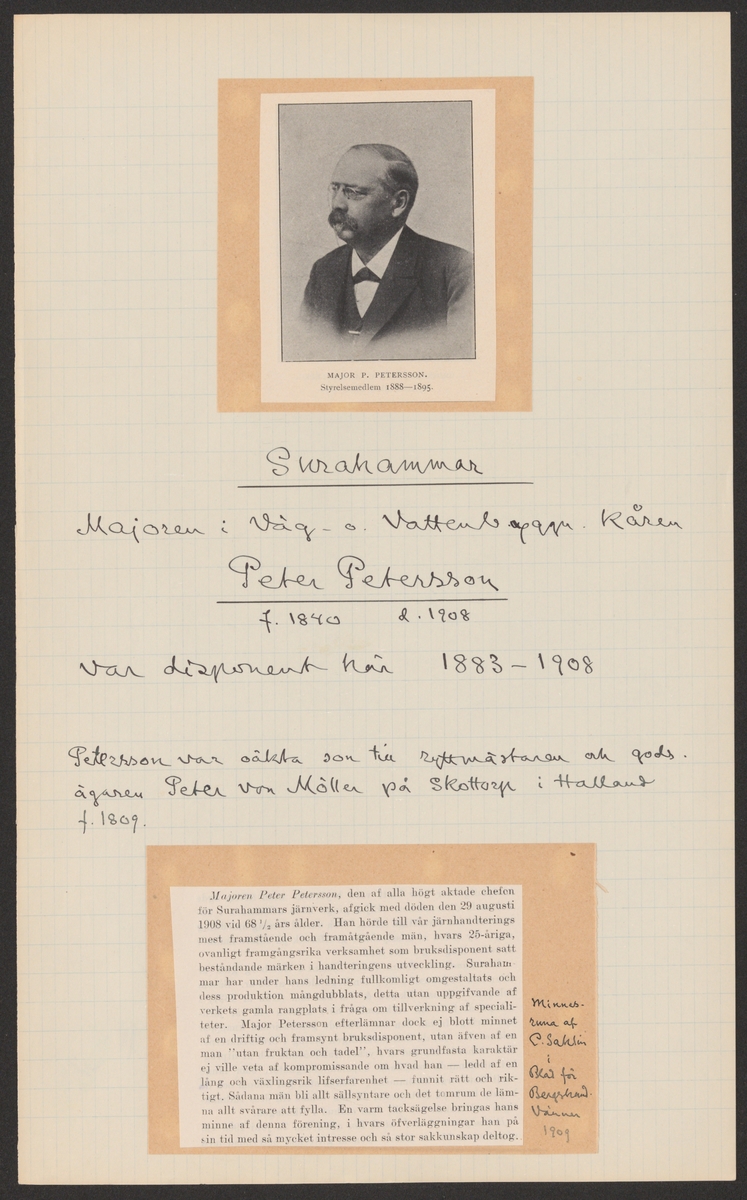 MAJOR P. PETERSSON.
Styrelsemedlem 1888—1895.
Surahammar
Majoren i Väg- o. Vattenbyggn. kåren
Peter Petersson
f. 1840 d. 1908
var disponent här 1883–1908
Petersson var oäkta son till ryttmästaren och gods-
ägaren Peter von Möller på Skottorp i Halland
f. 1809.
Majoren Peter Petersson, den af alla högt aktade chefen
för Surahammars järnverk, afgick med döden den 29 augusti
1908 vid 68 1/2 års ålder. Han hörde till vår järnhandterings
mest framstående och framåtgående män, hvars 25-åriga,
ovanligt framgångsrika verksamhet som bruksdisponent satt
bestående märken i handteringens utveckling. Suraham-
mar har under hans ledning fullkomligt omgestaltats och
dess produktion mångdubblats, detta utan uppgifvande af
verkets gamla rangplats i fråga om tillverkning af speciali-
teter. Major Petersson efterlämnar dock ej blott minnet
af en driftig och framsynt bruksdisponent, utan äfven af en
man "utan fruktan och tadel", hvars grundfasta karaktär
ej ville veta af kompromissande om hvad han — ledd af en
lång och växlingsrik lifserfarenhet — funnit rätt och rik-
tigt. Sådana män bli allt sällsyntare och det tomrum de läm-
na allt svårare att fylla. En varm tacksägelse bringas hans
minne af denna förening, i hvars öfverläggningar han på
sin tid med så mycket intresse och så stor sakkunskap deltog.
Minnes-
runa af
C. Sahlin
i
Blad för
Bergshand.
Vänner
1909